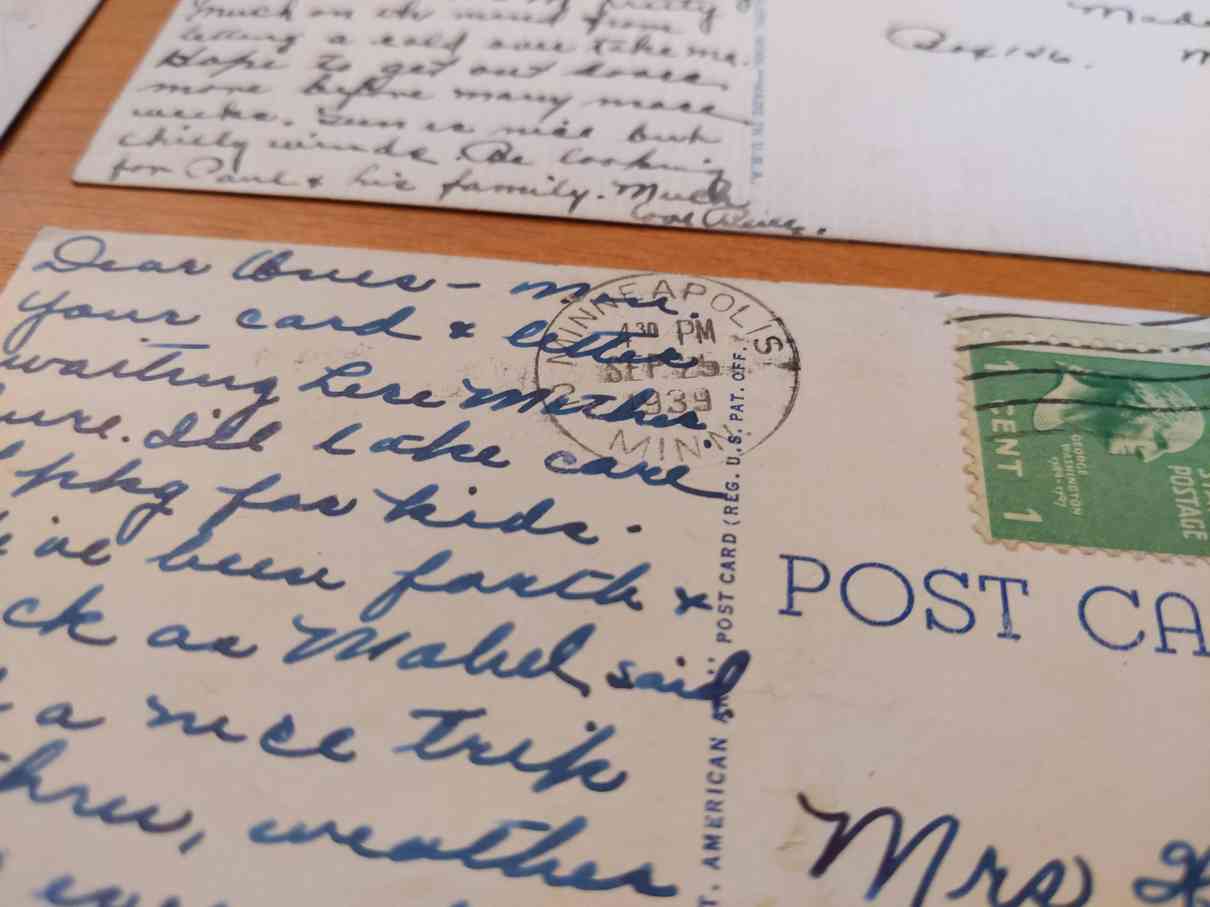 much on my mind from
letting a cold sore take me.
Hope to get out some
more before many more
weeks. Sun is nice but
chilly winds. Be looking
for Paul & his family. Much
love
Box 126.
Dear Ones - Mon.
your card & letter
waiting here Mother.
sure. I'll take care
pkg for kids.
I've been forth &
ck as Mabel said
a nice trip
thru, weather
MINNEAPOLIS
4 30 PM
SEP 25
1939
MINN.
POST CARD (REG. U.S. PAT. OFF.)
T. AMERICAN
1 CENT 1
GEORGE
WASHINGTON
POSTAGE
POST CA
Mrs